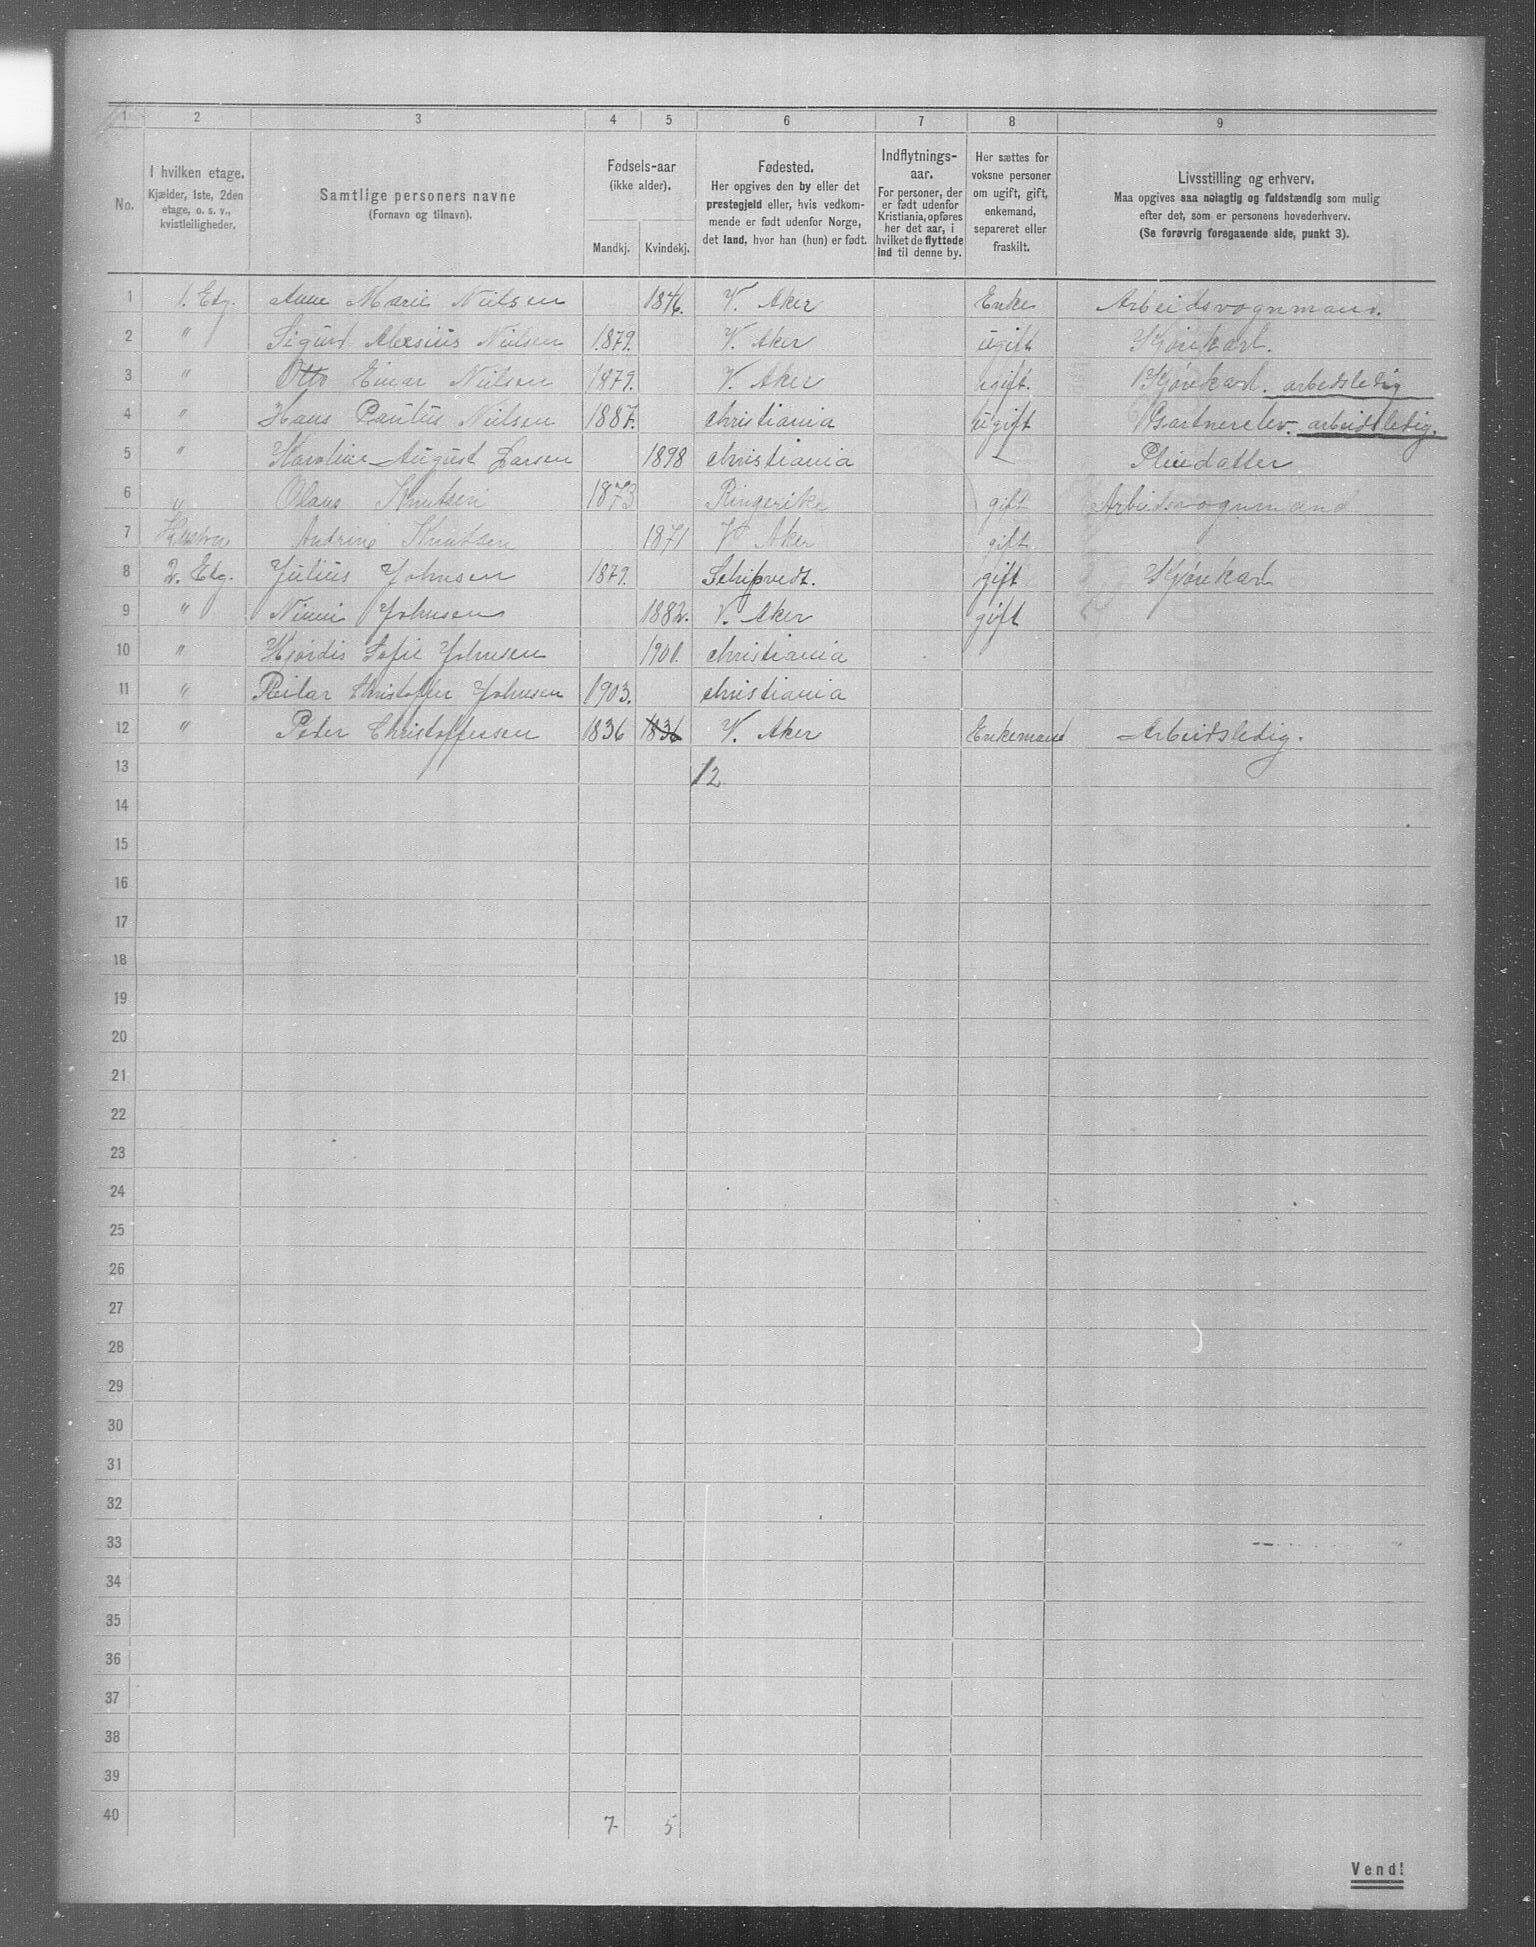 1 2 3 4 5 6 7 8 9
No.
I hvilken etage.
Kjælder, 1ste, 2den
etage, o. s. v.,
kvistleiligheder.
Samtlige personers navne
(Fornavn og tilnavn).
Fødsels-aar
(ikke alder).
Mandkj. Kvindekj.
Fødested.
Her opgives den by eller det
prestegjeld eller, hvis vedkom-
mende er født udenfor Norge,
det land, hvor han (hun) er født.
Indflytnings-
aar.
For personer, der
er født udenfor
Kristiania, opføres
her det aar, i
hvilket de flyttede
ind til denne by.
Her sættes for
voksne personer
om ugift, gift,
enkemand,
separeret eller
fraskilt.
Livsstilling og erhverv.
Maa opgives saa nøiagtig og fuldstændig som mulig
efter det, som er personens hovederhverv.
(Se forøvrig foregaaende side, punkt 3).
1 1. Etg. Anne Marie Nielsen 1846. V. Aker Enke Arbeidsvognmand.
2 " Sigurd Alexsius Nielsen 1879. V. Aker ugift Kjørekarl.
3 " Otto Einar Nielsen 1879. V. Aker ugift. Kjørekarl. arbedsledig
4 " Hans Paulus Nielsen 1887. christiania ugift Gartnerelev. arbeidsledig.
5 " Karoline August Larsen 1898 christiania Pleiedatter
6 " Olaus Knutsen 1873 Ringerike gift Arbeidsvognmand
7 Hustru Andrine Knutsen 1871 V Aker gift
8 2. Etg. Julius Johnsen 1879. Schipvedt. gift Kjørekarl
9 " Ninni Johnsen 1882. V. Aker gift
10 " Hjördis Sofie Johnsen 1901. christiania
11 " Reilar Christoffer Johnsen 1903. christiania
12 " Peder Christoffersen 1836 1836 V. Aker Enkemand Arbeidsledig.
13 12
14
15
16
17
18
19
20
21
22
23
24
25
26
27
28
29
30
31
32
33
34
35
36
37
38
39
40 7 5
Vend!